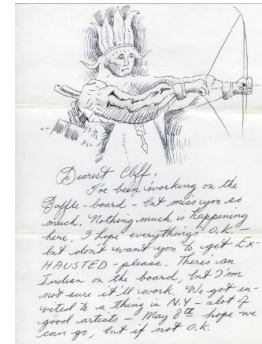 Dearest Cliff,
I've been working on the
Boffle-board - but miss you so
much. Nothing much is happening
here. I hope everything's O.K. -
but don't want you to get EX-
HAUSTED - please. There's an
Indian on the board, but I'm
not sure it'll work. We got in-
vited to a thing in N.Y - alot of
good artists - May 8th hope we
can go, but if not O.K.